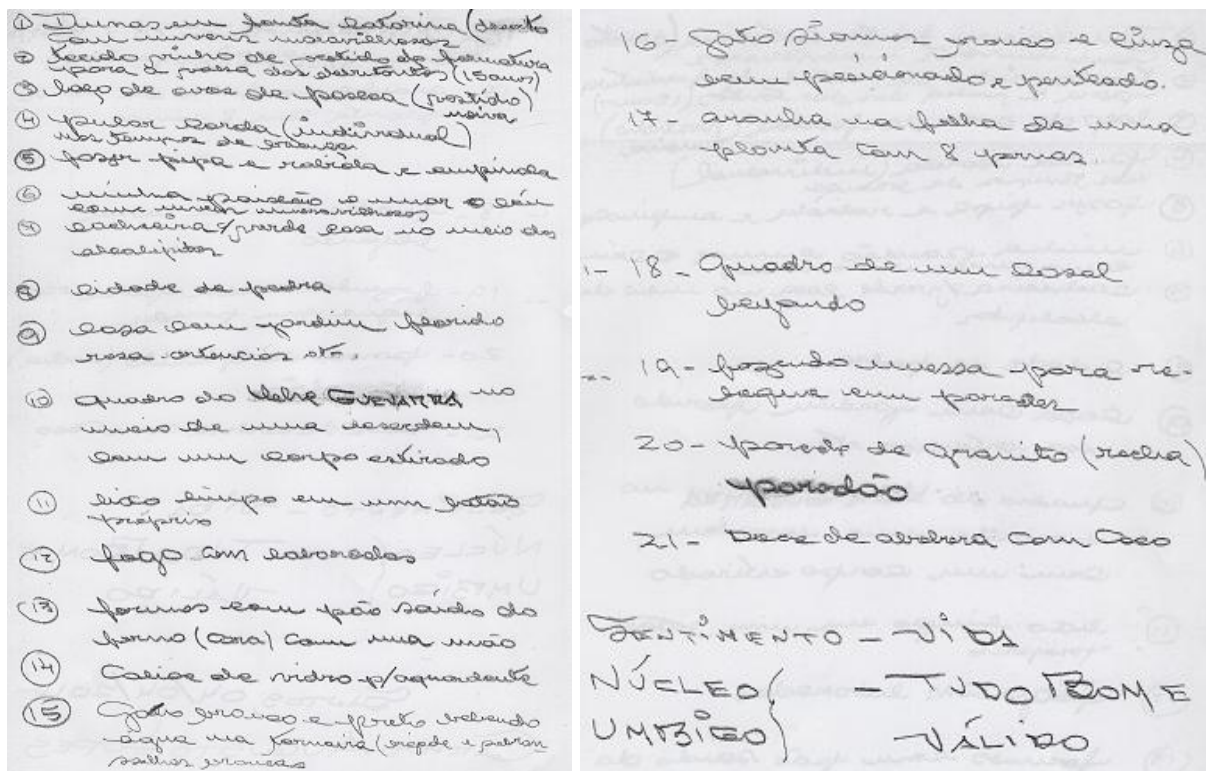 ① Dunas em Santa Catarina (deserto
com nuvens maravilhosas
② Tecido vinho de vestido de formatura
para a valsa dos debutantes (15 anos)
③ laço de ovos de pascoa (vestido)
noiva
④ pular corda (individual)
nos tempos de criança
⑤ fazer pipa e rabiola e empiná-la
⑥ minha paixão o mar o céu
com nuvens maravilhosas
⑦ cachoeira/parede casa no meio dos
eucaliptos
⑧ cidade de pedra
⑨ casa com jardim florido
rosa ortencias etc.
⑩ quadro do GUERRA no
meio de uma desordem,
com um corpo estirado
⑪ lixo limpo em um latão
próprio
⑫ fogo com labaredas
⑬ formas com pão saído do
forno (casa) com uma mão
⑭ Calice de vidro p/aguardente
⑮ Gato branco e preto bebendo
agua na torneira (bigode e
brancas
16- Gato Siamês branco e cinza
bem posicionado e penteado.
17- aranha na folha de uma
planta com 8 pernas.
18- Quadro de um casal
beijando
19- fazendo massa para re-
boque em paredes
20- parede de granito (rocha)
paredão
21- Doce de abobora com Coco
SENTIMENTO - VIDA
NÚCLEO ( - TUDO BOM E
UMBIGO ) VÁLIDO